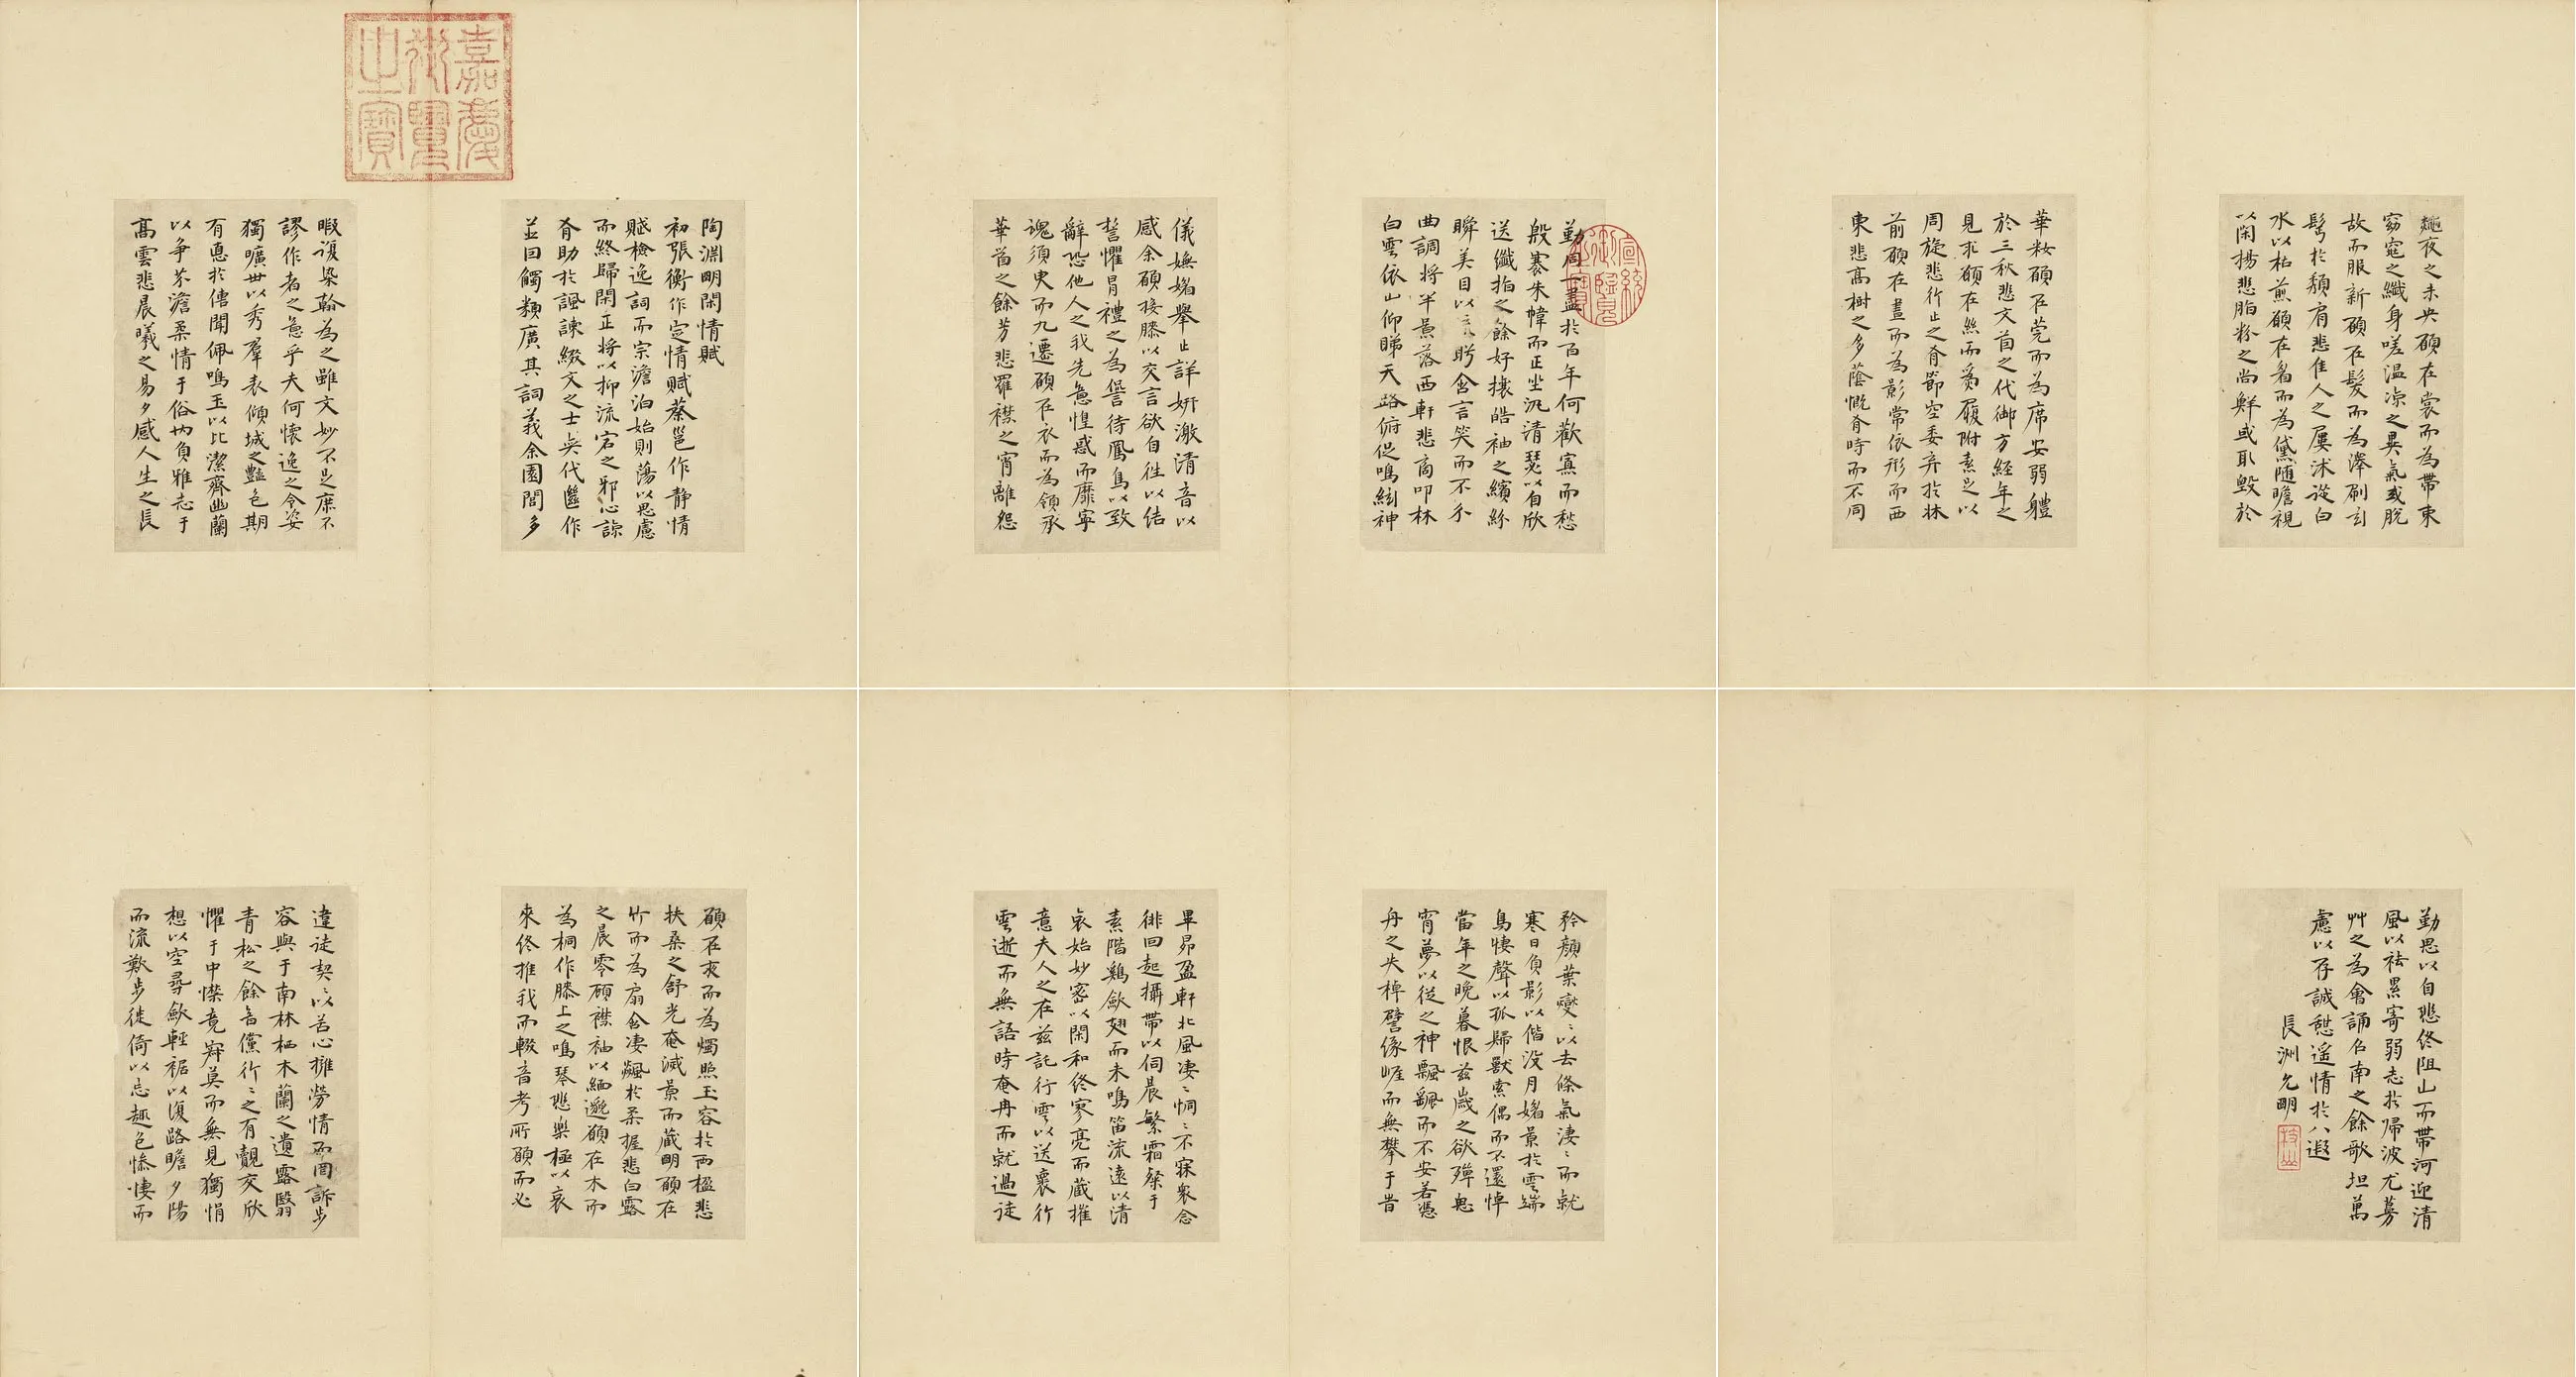 嘉慶御覽之寶
陶淵明閑情賦
初張衡作定情賦蔡邕作静情
賦檢逸詞而宗澹泊始則蕩以思慮
而終歸閑正將以抑流宕之邪心諒
有助於諷諫綴文之士奕代繼作
並回觸類廣其詞義余園閭多
暇復染翰為之雖文妙不足庶不
謬作者之意乎夫何懷逸之令姿
獨曠世以秀羣表傾城之豔色期
有惪於傳聞佩鳴玉以比潔齊幽蘭
以争芬澹柔情于俗内負雅志于
高雲悲晨曦之易夕感人生之長
宣統御覽之寶
勤同一盡於百年何歡寡而愁
殷褰朱幃而正坐汎清瑟以自欣
送纖指之餘好攘皓袖之繽紛
瞬美目以流眄含言笑而不分
曲調将半景落西軒悲商叩林
白雲依山仰睇天路俯促鳴絃神
儀嫵媚舉止詳妍激清音以
感余願接膝以交言欲自往以結
誓懼冒禮之為諐待鳳鳥以致
辭恐他人之我先意惶惑而靡寧
魂須臾而九遷願在衣而為領承
華首之餘芳悲羅襟之宵離怨
龝夜之未央願在裳而為帶束
窈窕之纖身嗟温凉之異氣或脱
故而服新願在髮而為澤刷玄
鬢於頹肩悲佳人之屢沐從白
水以枯煎願在眉而為黛随瞻視
以閑揚悲脂粉之尚鮮或取毀於
華粧願在莞而為席安弱軆
於三秋悲文茵之代御方經年之
見求願在絲而為履附素足以
周旋悲行止之有節空委弃於牀
前願在晝而為影常依形而西
東悲高樹之多蔭慨有時而不同
願在夜而為燭照玉容於兩楹悲
扶桑之舒光奄滅景而藏明願在
竹而為扇含凄飈於柔握悲白露
之晨零顧襟袖以緬邈願在木而
為桐作膝上之鳴琴悲樂極以哀
來終推我而輟音考所願而必
違徒契〻以苦心擁勞情而罔訴步
容與于南林栖木蘭之遺露翳
青松之餘音儻行〻之有覿交欣
懼于中襟竟寂莫而無見獨悁
想以空尋歛輕裾以復路瞻夕陽
而流歎步徙倚以忘趣色慘悽而
矜顏葉燮〻以去條氣淒〻而就
寒日負影以偕没月媚景於雲端
鳥悽聲以孤歸獸索偶而不還悼
當年之晚暮恨兹歲之欲殫思
宵夢以從之神飄颻而不安若憑
舟之失棹譬緣崕而無攀于昔
畢昴盈軒北風凄〻惘〻不寐衆念
徘回起攝帶以伺晨繁霜粲于
素階鷄歛翅而未鳴笛流遠以清
哀始妙密以閑和終寥亮而藏摧
意夫人之在兹託行雲以送懷行
雲逝而無語時奄冉而就過徒
勤思以自悲終阻山而帶河迎清
風以祛累寄弱志於帰波尤蔓
艸之為會誦召南之餘歌坦萬
慮以存誠憩遥情於八遐
長洲允明
枝山